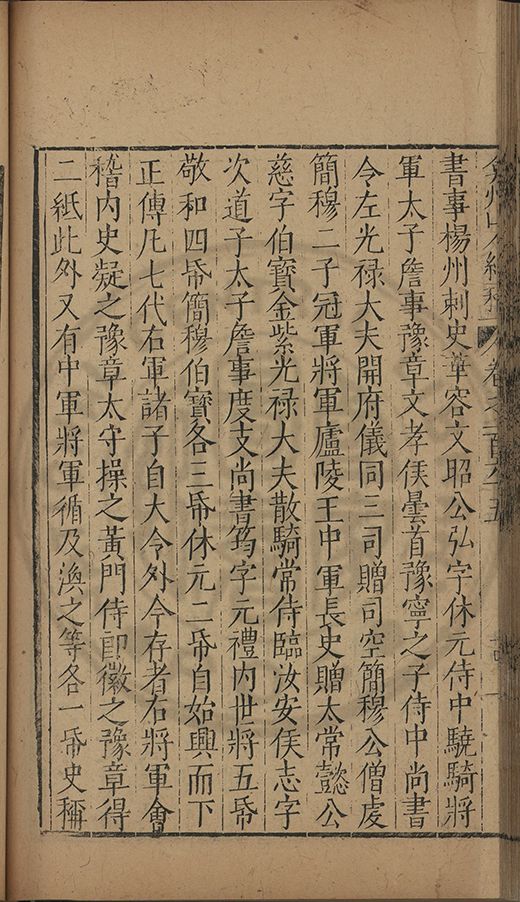 弇州山人續稿 卷之一百六十五
書事楊州刺史華容文昭公弘字休元侍中驍騎將
軍太子詹事豫章文孝侯曇首豫寧之子侍中尚書
令左光禄大夫開府儀同三司贈司空簡穆公僧虔
簡穆二子冠軍將軍廬陵王中軍長史贈太常懿公
慈字伯寳金紫光禄大夫散騎常侍臨汝安侯志字
次道子太子詹事度支尚書筠字元禮内世將五帋
敬和四帋簡穆伯寳各三帋休元二帋自始興而下
正傳凡七代右軍諸子自大令外今存者右將軍會
稽内史凝之豫章太守操之黄門侍郎徽之豫章得
二紙此外又有中軍將軍循及渙之等各一帋史稱